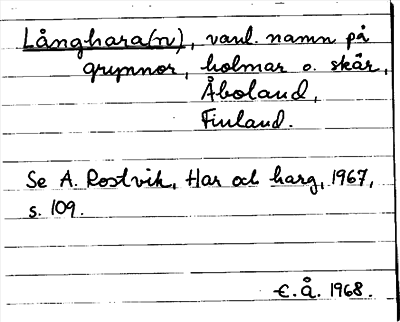 Långhara(n), vanl. namn på
grynnor, holmar o. skär,
Åboland,
Finland.
Se A. Rostvik, Har och harg, 1967,
s. 109.
E.Å. 1968.